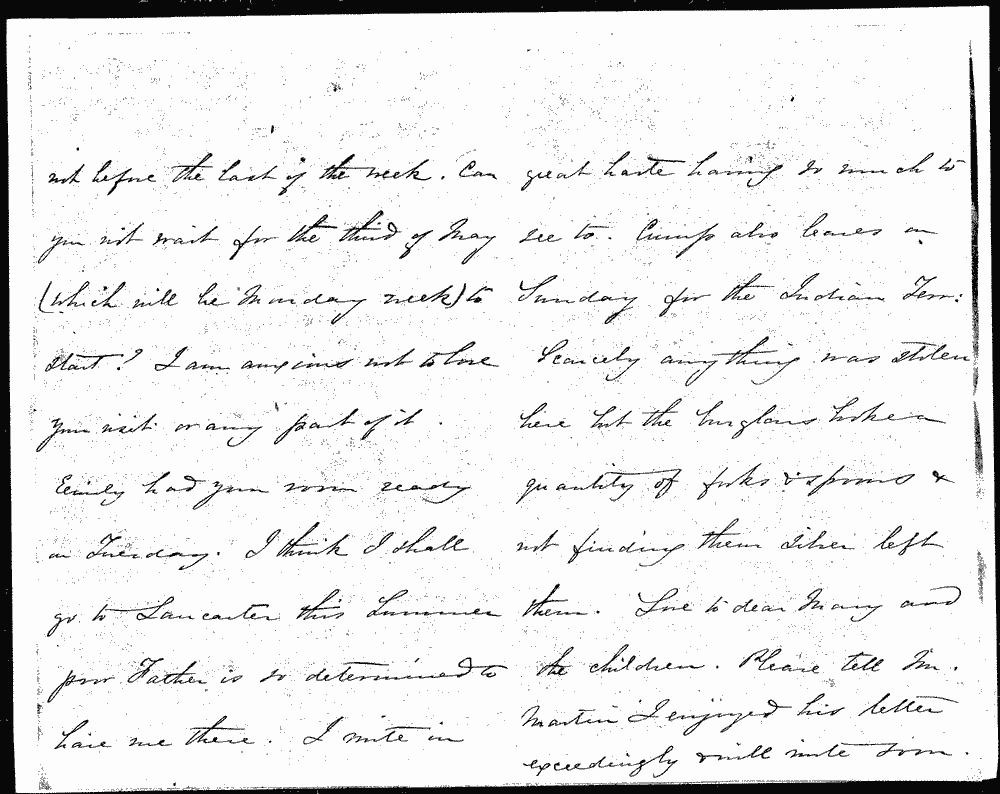 not before the last of the week. Can
you not wait for the third of May
(which will be Monday week) to
start? I am anxious not to lose
your visit or any part of it.
Emily had your room ready
on Tuesday. I think I shall
go to Lancaster this Summer
poor Father is so determined to
have me there. I write in
great haste having so much to
see to. Cump also leaves on
Sunday for the Indian Terr:
Scarcely anything was stolen
here but the burglars broke a
quantity of forks & spoons &
not finding them silver left
them. Love to dear Mary and
the children. Please tell Mr.
Martin I enjoyed his letter
exceedingly & will write soon.